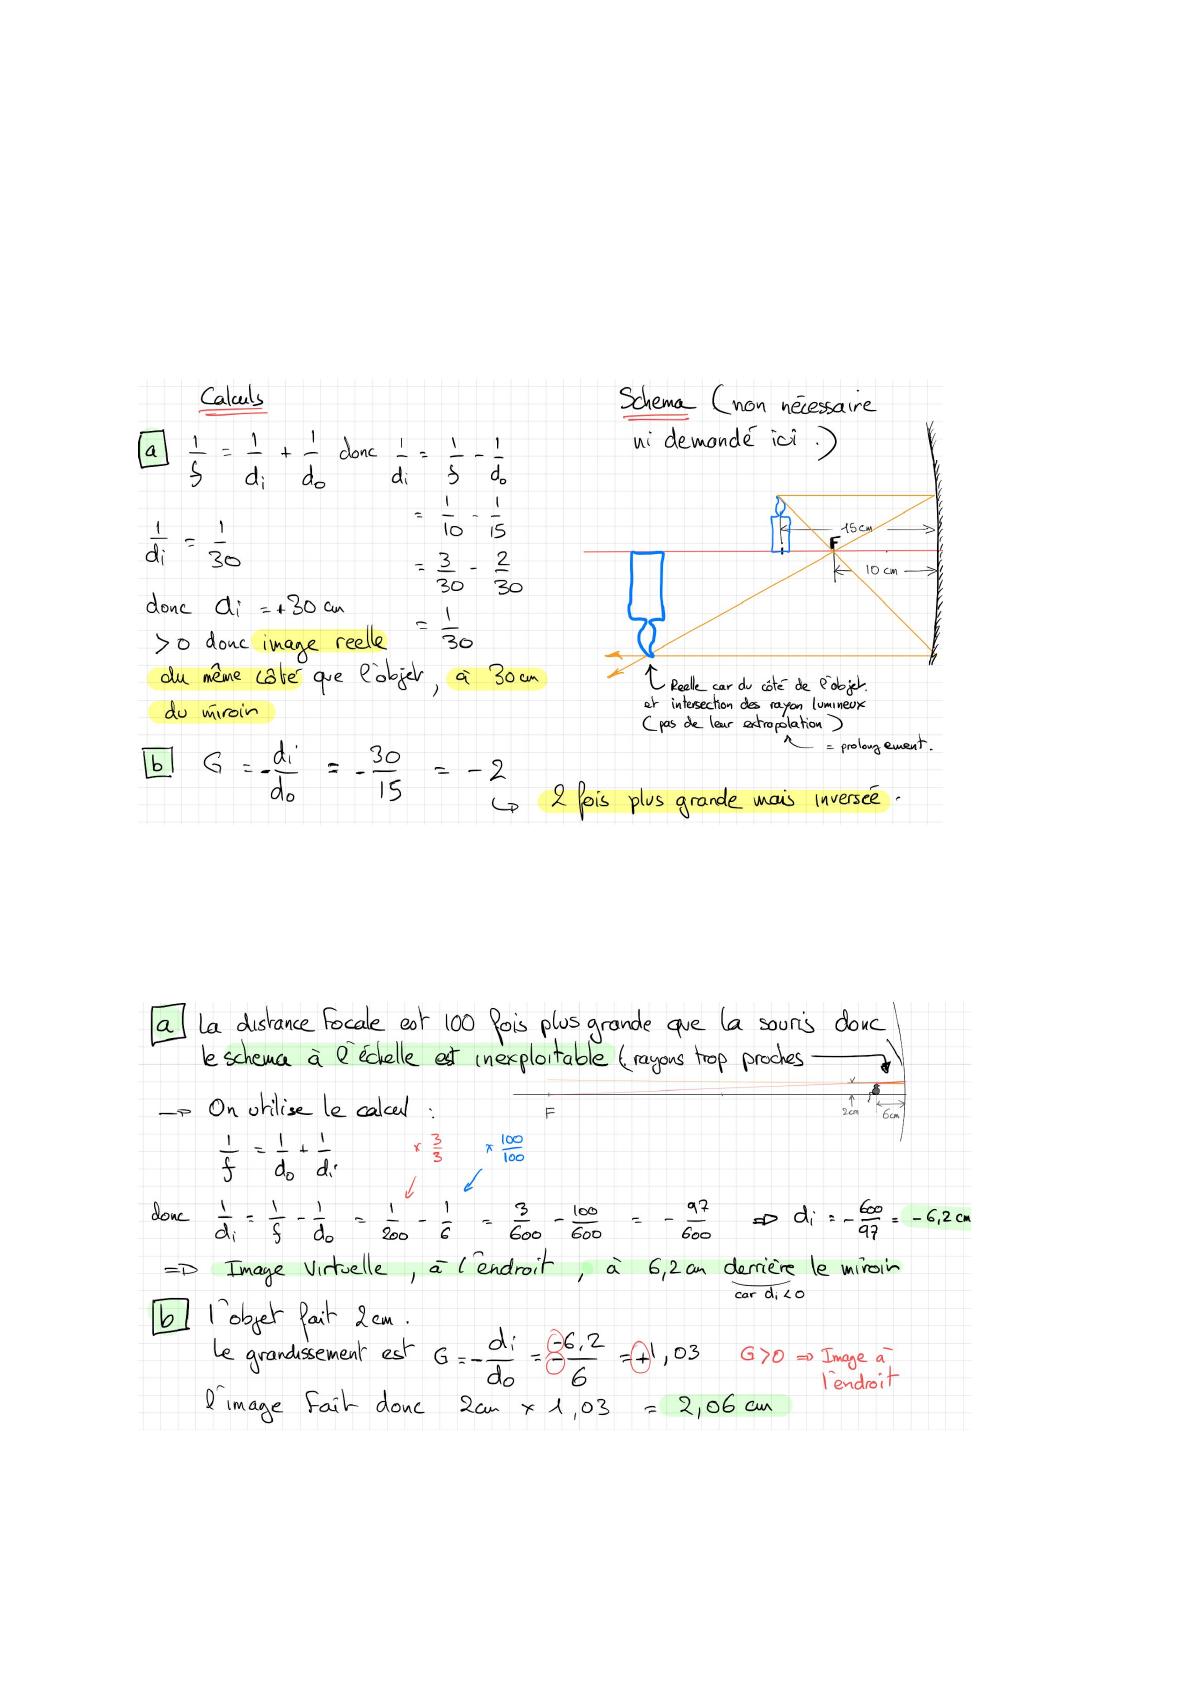 Calculs
Schema (non nécessaire
ni demandé ici.)
a 1/f = 1/di + 1/do donc 1/di = 1/f - 1/do
= 1/10 - 1/15
1/di = 1/30
= 3/30 - 2/30
= 1/30
donc di = +30 cm
>0 donc image reelle
du même côté que l'objet, à 30cm
du miroir
15cm
F
10 cm
Reelle car du côté de l'objet.
et intersection des rayon lumineux
(pas de leur extropolation)
= prolongement.
b G = -di/do = -30/15 = -2
↪ 2 fois plus grande mais inversée.
a La distance Focale est 100 fois plus grande que la souris donc
le schema à l'échelle est inexploitable (rayons trop proches
→ On utilise le calcul :
F
2cm
6cm
1/f = 1/do + 1/di
× 3/3
× 100/100
donc 1/di = 1/f - 1/do = 1/200 - 1/6 = 3/600 - 100/600 = - 97/600 ⇒ di = - 600/97 = -6,2 cm
⇒ Image Virtuelle, à l'endroit, à 6,2cm derrière le miroir
car di<0
b l'objet fait 2cm.
Le grandissement est G = -di/do = - -6,2/6 = +1,03
G>0 ⇒ Image à
l'endroit
l'image Fait donc 2cm × 1,03 = 2,06 cm